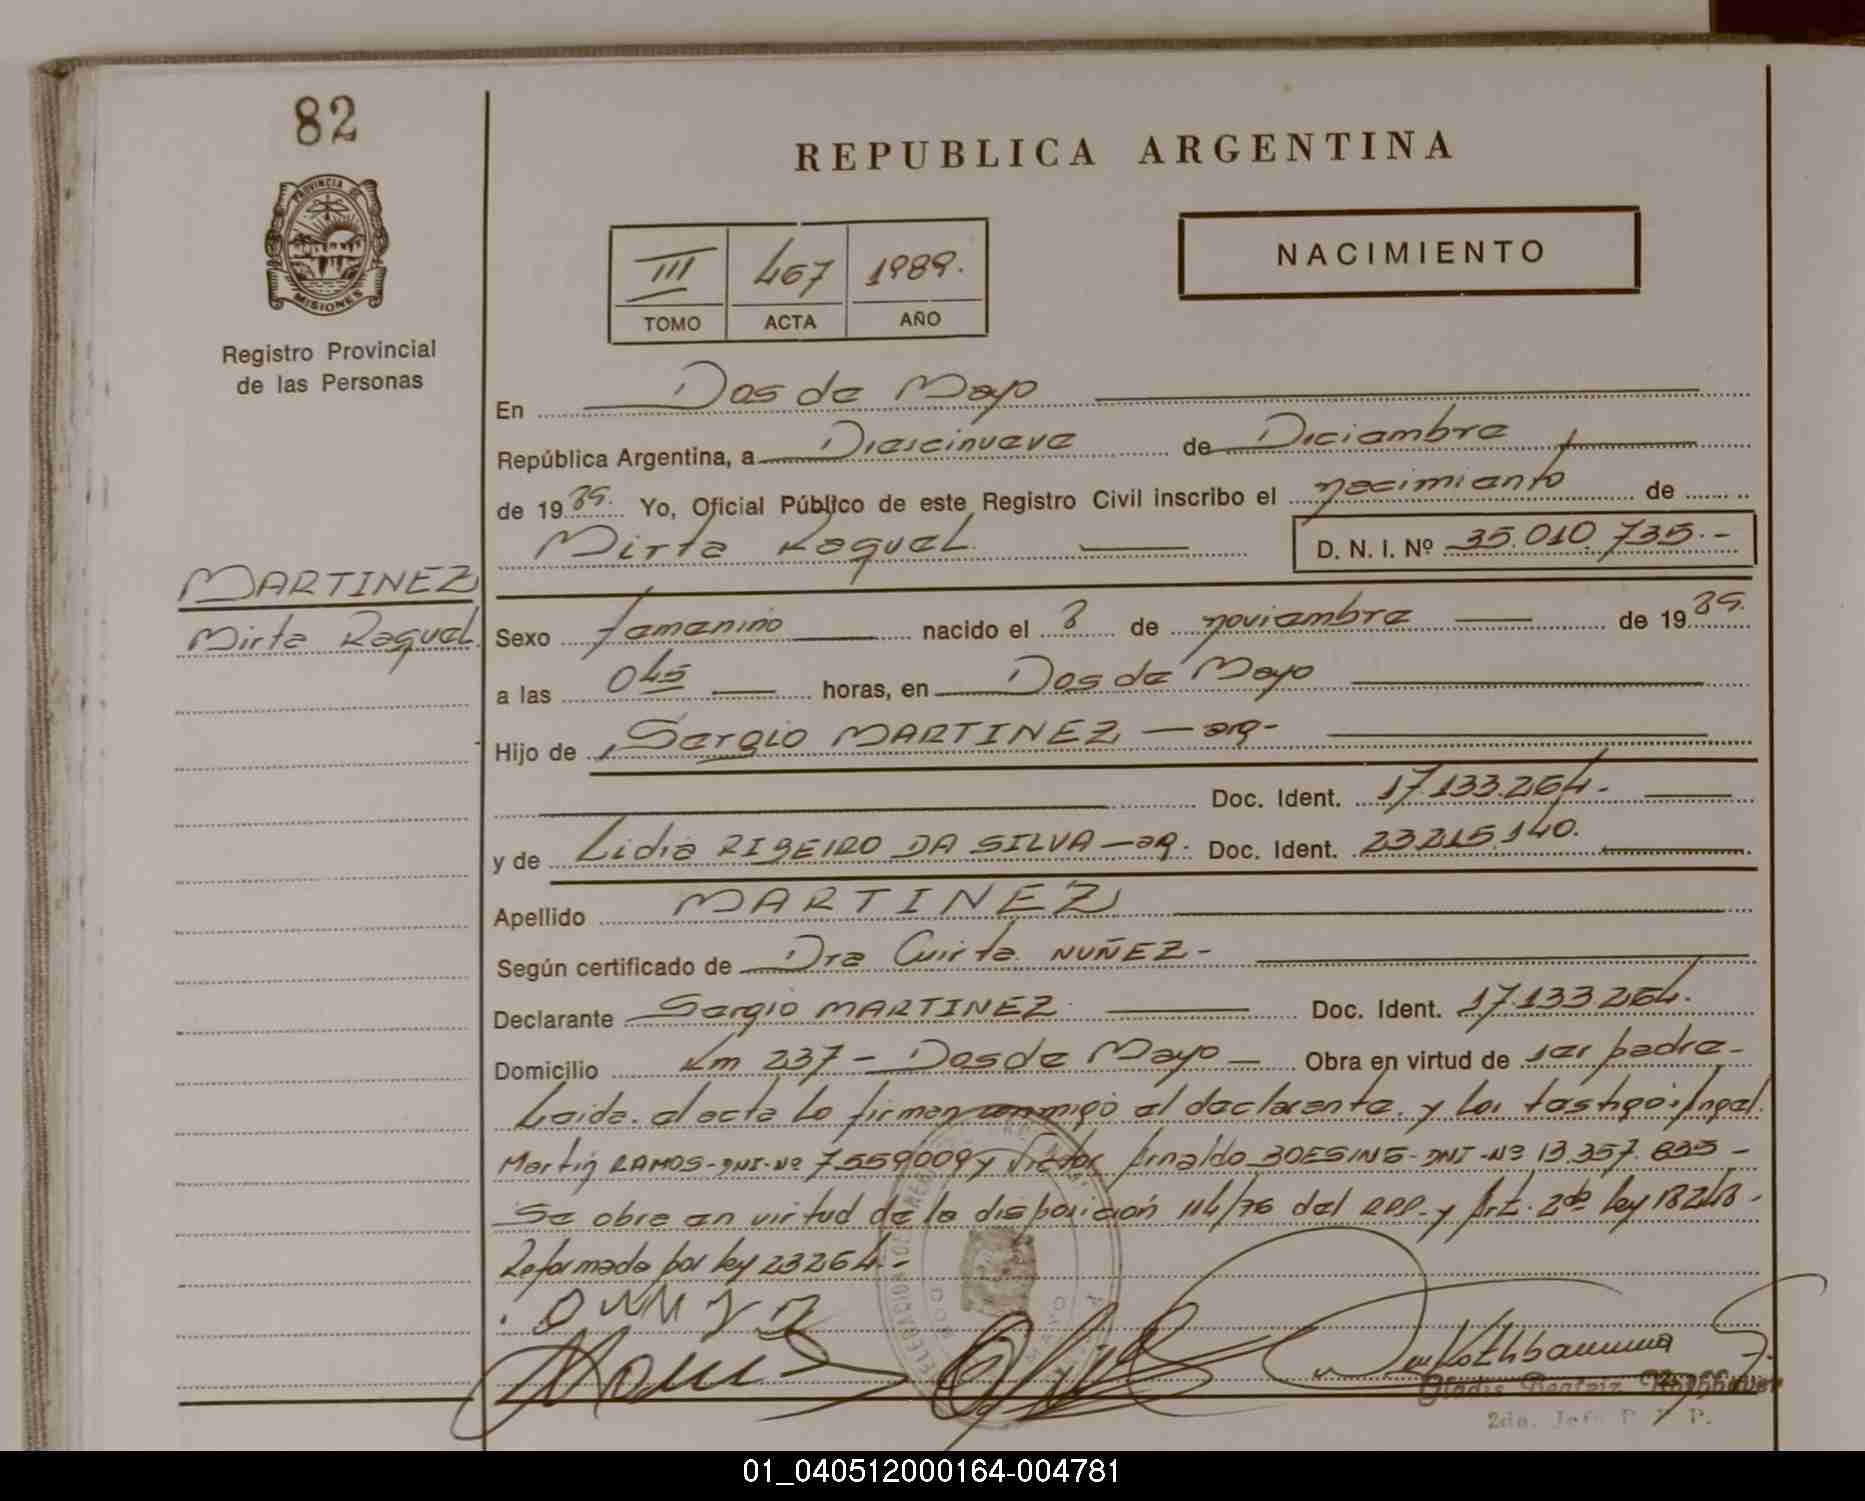 82
REPUBLICA ARGENTINA
PROVINCIA DE
MISIONES
Registro Provincial
de las Personas
III 467 1989.
TOMO ACTA AÑO
NACIMIENTO
En Dos de Mayo
República Argentina, a Diescinueve de Diciembre
de 1989. Yo, Oficial Público de este Registro Civil inscribo el nacimiento de
Mirta Raquel. D. N. I. Nº 35.010.735.-
MARTINEZ
Mirta Raquel.
Sexo femenino nacido el 8 de noviembre de 1989.
a las 045 horas, en Dos de Mayo
Hijo de Sergio MARTINEZ - arg-
Doc. Ident. 17.133.264.-
y de Lidia RIBEIRO DA SILVA - ag. Doc. Ident. 23.215.140.
Apellido MARTINEZ
Según certificado de Dra NUÑEZ-
Declarante Sergio MARTINEZ Doc. Ident. 17.133.264.
Domicilio Km 237 - Dos de Mayo - Obra en virtud de ser padre-
Leida el acta lo firman conmigo el declarante y los testigos: Angel
Martin RAMOS - DNI-Nº 7.559.009 y Victor Arnaldo BOESING - DNI-Nº 13.357.835 -
Se obra en virtud de la disposición 114/76 del RPP. y Art. 2do ley 18248.
Reformada por ley 23264.-
Gladis Beatriz
2do. Jefe R. P. P.
01_040512000164-004781